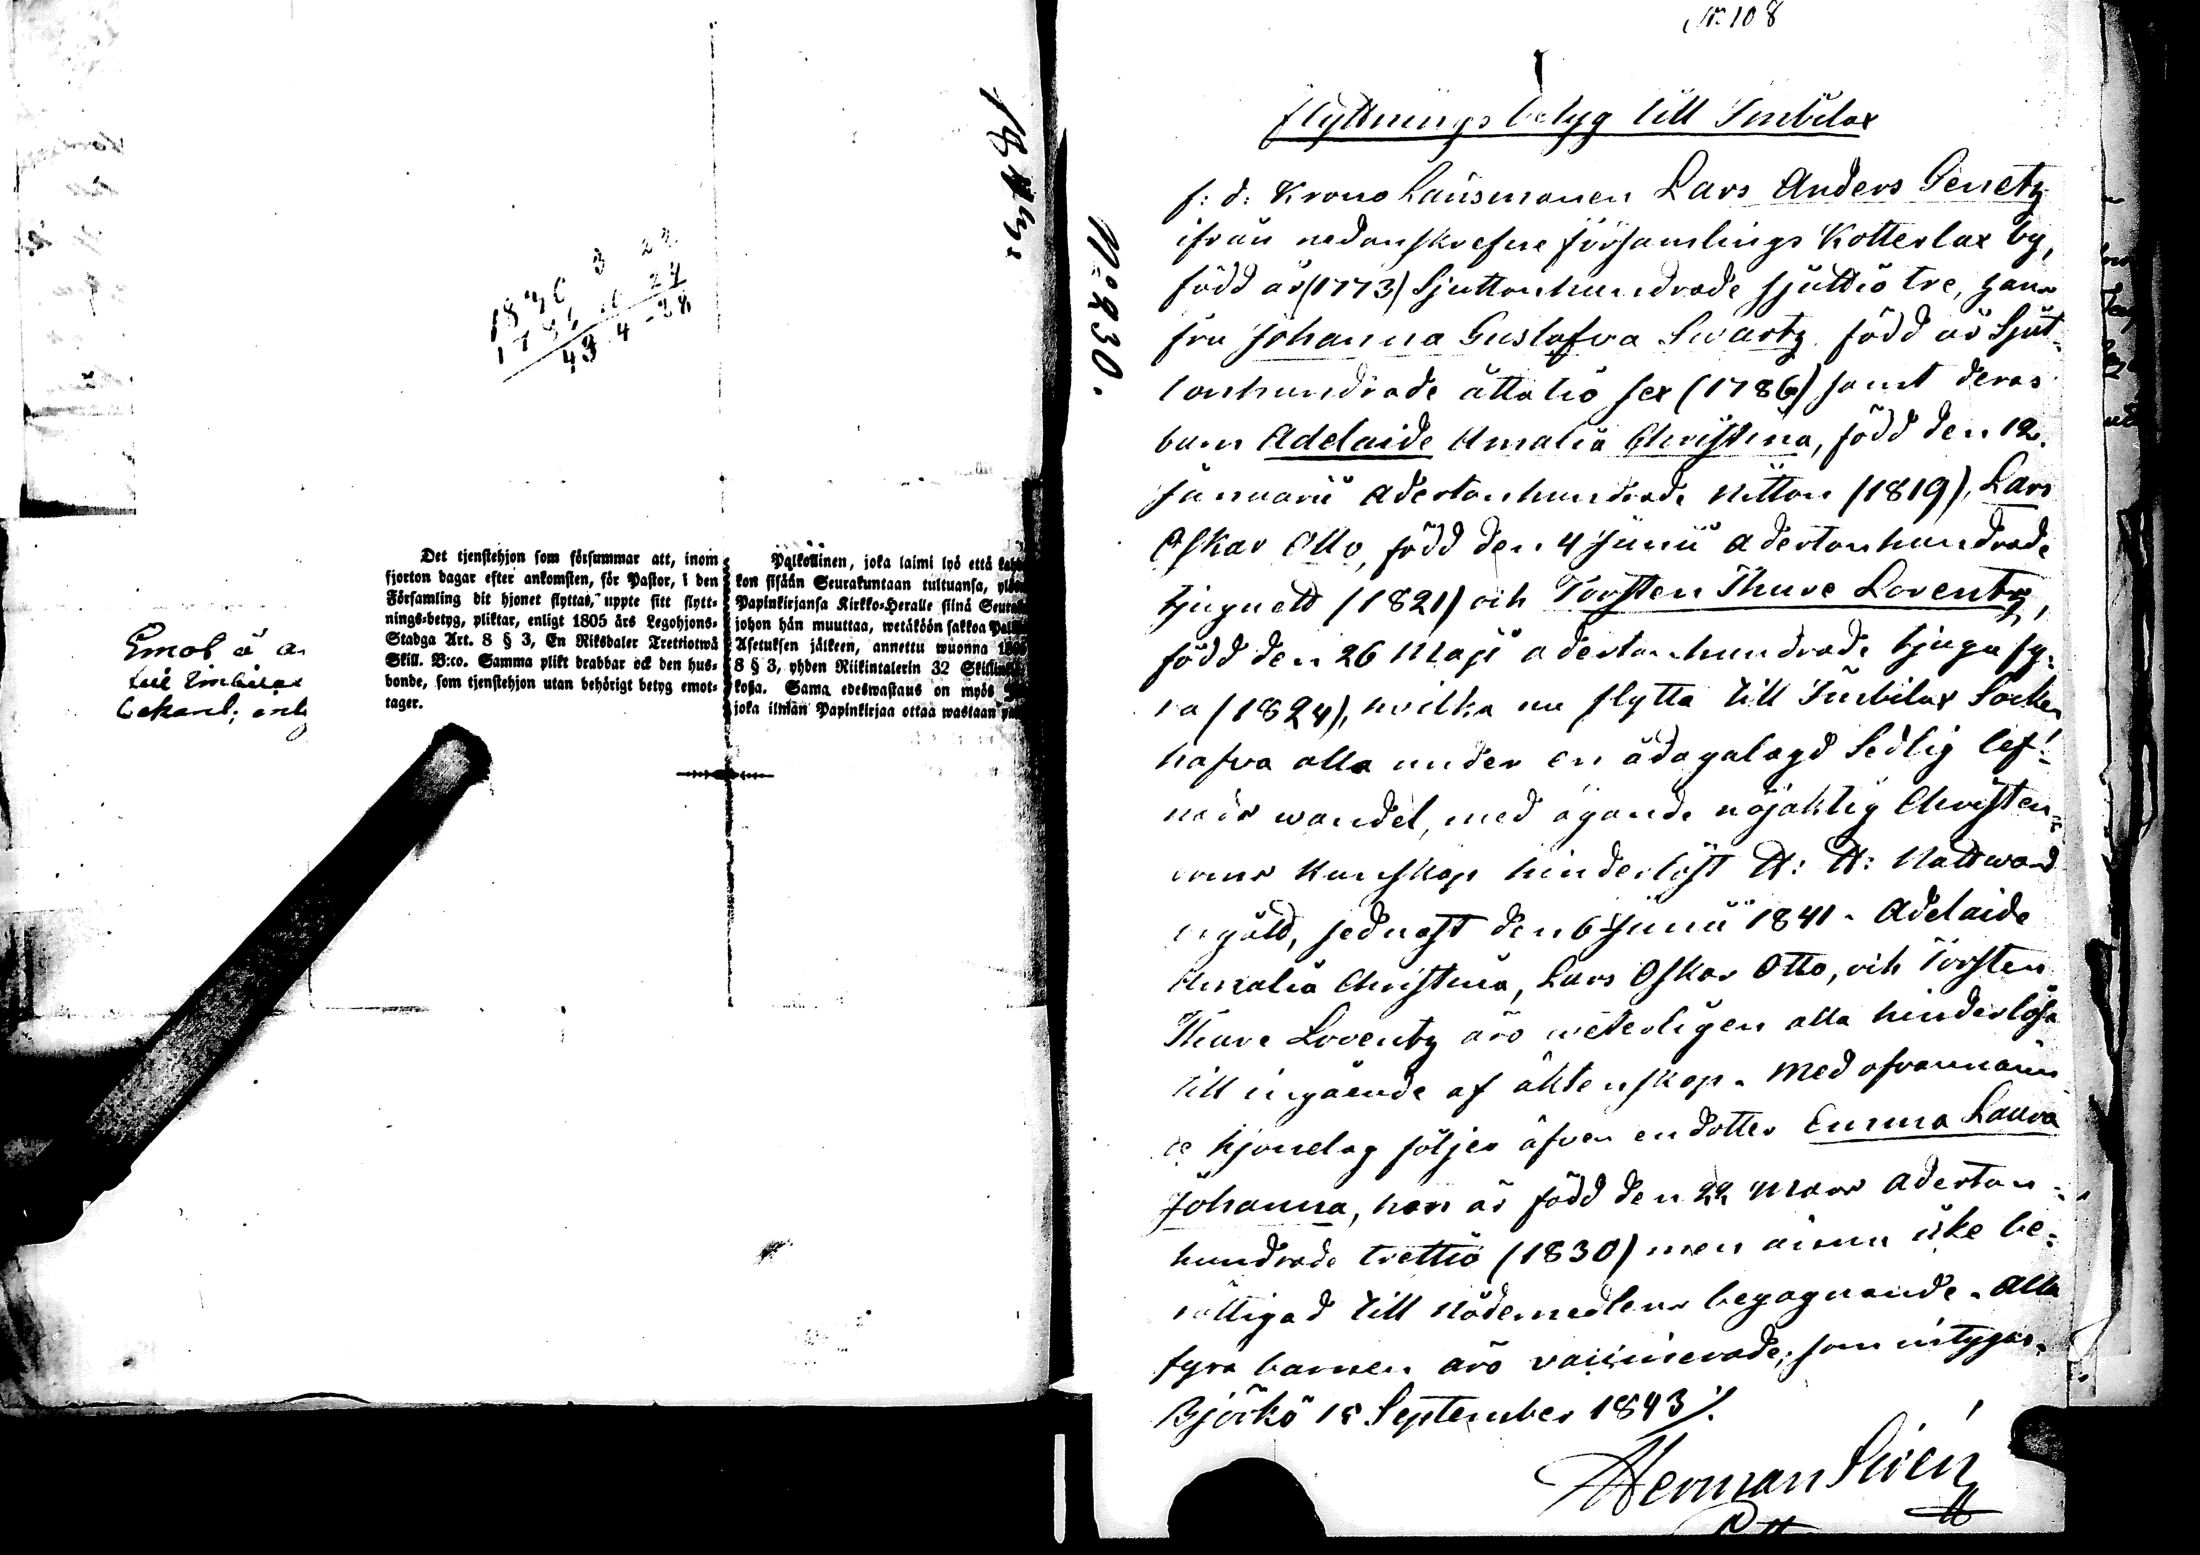 Det tjenstehjon som försummar att, inom
fjorton dagar efter ankomsten, för Pastor, i den
Församling dit hjonet flyttas, uppte sitt flytt-
nings-betyg, pliktar, enligt 1805 års Legohjons-
Stadga Art. 8 § 3, En Riksdaler Trettiotwå
Skill. B:co. Samma plikt drabbar ock den hus-
bonde, som tjenstehjon utan behörigt betyg emot-
tager.
Palkollinen, joka laimi lyö että
kon sisään Seurakuntaan tultuansa,
Papinkirjansa Kirkko-Heralle siinä
johon hän muuttaa, wetäköön sakkoa
Asetuksen jälkeen, annettu wuonna
8 § 3, yhden Riikintalerin 32
Sama edeswastaus on myös
joka ilman Papinkirjaa ottaa wastaan
No 230.
N: 108
Flyttningsbetyg till Imbilax
f: d: Krono Länsmannen Lars Anders Genetz
ifrån nedanskrefne församlings Kotterlax by,
född år (1773) Sjuttonhundrade sjuttio tre, hans
fru Johanna Gustafva Swartz född år Sjut-
tonhundrade åttatio sex (1786) samt deras
barn Adelaide Amalia Christina, född den 12
Januarii adertonhundrade nitton (1819), Lars
Oskar Otto, född den 4 Junii adertonhundrade
tjuguett (1821) och Torsten Thure Lorentz,
född den 26 Maji adertonhundrade tjugu fy-
ra (1824), hvilka nu flytta till Imbilax Socken
hafva alla under en ådagalagd Sedlig lef-
nads wandel, med ägande nöjaktig Christen-
doms kunskap hinderlöst H: H: Nattward
begådt, sednast den 6 Junii 1841. Adelaide
Amalia Christina, Lars Oskar Otto, och Torsten
Thure Lorentz äro weterligen alla hinderlösa
till ingående af äktenskap. Med ofvannämn-
de hjonelag följer äfven en dotter Emma Laura
Johanna, hon är född den 22 Mars Aderton-
hundrade trettio (1830) men ännu icke be-
rättigad till Nådemedlens begagnande. Alla
fyra barnen äro vaccinerade; som intygas.
Björkö 15 September 1843 ./.
Herman Sirén